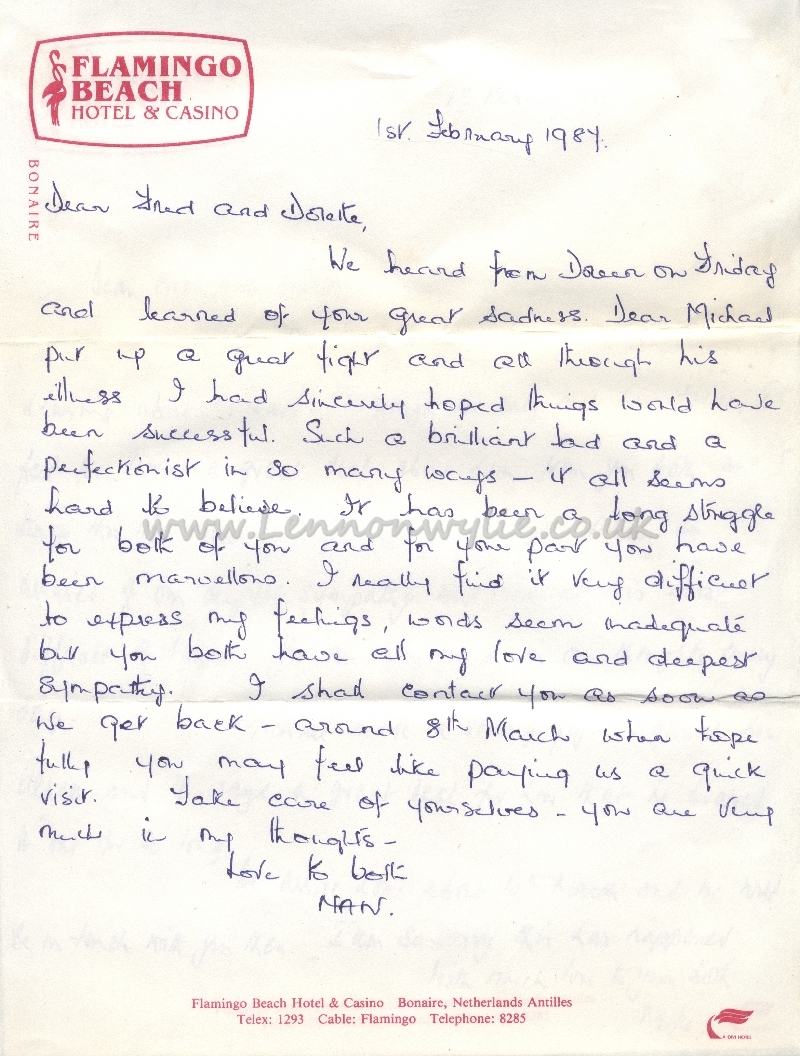 FLAMINGO
BEACH
HOTEL & CASINO
BONAIRE
1st. February 1984.
Dear Fred and Dolette,
We heard from Doreen on Friday
and learned of your great sadness. Dear Michael
put up a great fight and all through his
illness I had sincerely hoped things would have
been successful. Such a brilliant lad and a
perfectionist in so many ways – it all seems
hard to believe. It has been a long struggle
www.Lennonwylie.co.uk
for both of you and for your part you have
been marvellous. I really find it very difficult
to express my feelings, words seem inadequate
but you both have all my love and deepest
sympathy. I shall contact you as soon as
we get back – around 8th March when hope
fully you may feel like paying us a quick
visit. Take care of yourselves – you are very
much in my thoughts –
Love to both
NAN.
Flamingo Beach Hotel & Casino Bonaire, Netherlands Antilles
Telex: 1293 Cable: Flamingo Telephone: 8285
A DIVI HOTEL